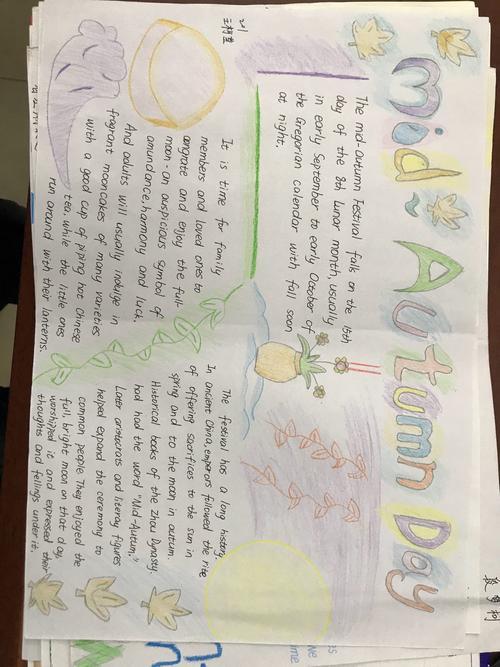 Mid-Autumn Day
The mid-autumn Festival falls on the 15th
day of the 8th lunar month, usually
in early September to early October of
the Gregorian calendar with full soon
at night.
It is time for family
members and loved ones to
congrate and enjoy the full-
moon-an auspicious symbol of
amundance, harmony and luck.
And adults will usually indulge in
fragrant mooncakes of many varieties
with a good cup of piping hot Chinese
tea, while the little ones
run around with their lanterns.
The festival has a long history.
In ancient China, emperors followed the rite
of offering sacrifices to the sun in
spring and to the moon in autum.
Historical books of the Zhou Dynasty.
had had the word "Mid-Autum."
Later aristocrats and literay figures
helped expand the ceremony to
common people. They enjoyed the
full, bright moon on that day,
worshiped it and expressed their
thoughts and fellings under it.